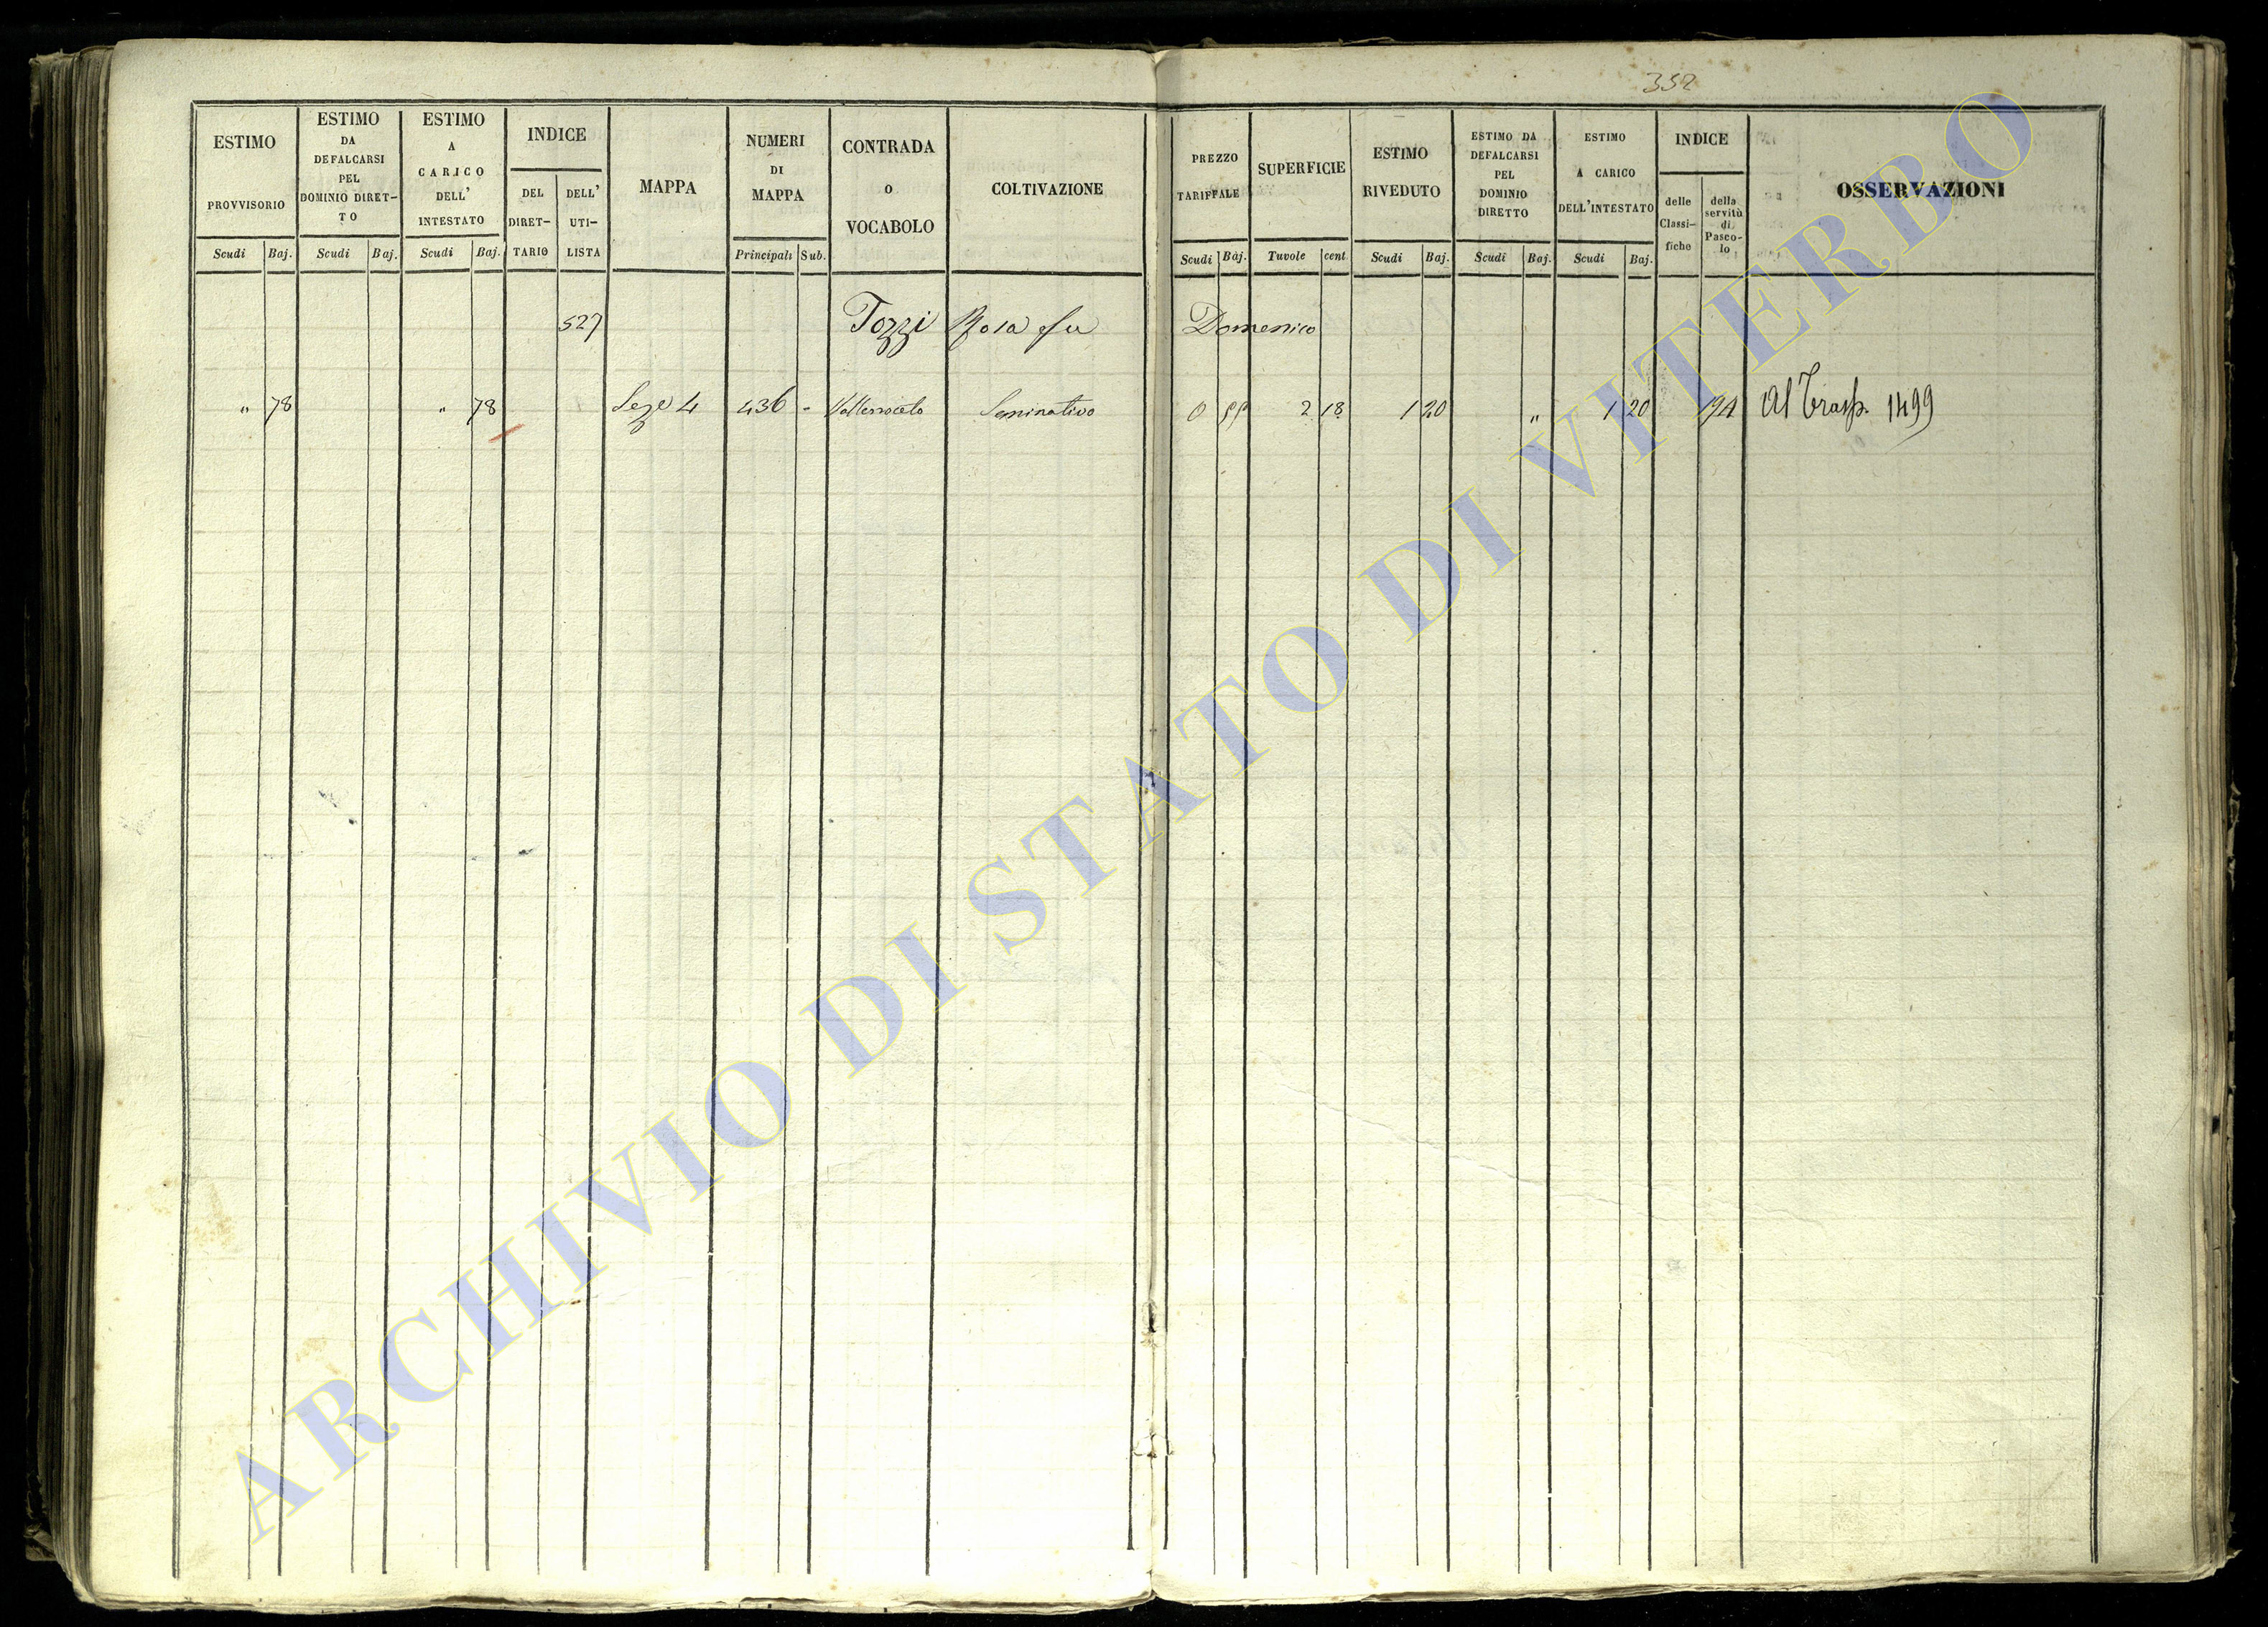 352
ESTIMO PROVVISORIO
Scudi Baj.
ESTIMO DA DEFALCARSI PEL DOMINIO DIRET-TO
Scudi Baj.
ESTIMO A CARICO DELL' INTESTATO
Scudi Baj.
INDICE
DEL DIRET-TARIO
DELL' UTI-LISTA
MAPPA
NUMERI DI MAPPA
Principali Sub.
CONTRADA O VOCABOLO
COLTIVAZIONE
PREZZO TARIFFALE
Scudi Baj.
SUPERFICIE
Tavole cent
ESTIMO RIVEDUTO
Scudi Baj.
ESTIMO DA DEFALCARSI PEL DOMINIO DIRETTO
Scudi Baj.
ESTIMO A CARICO DELL'INTESTATO
Scudi Baj.
INDICE
delle Classi-fiche
della servitù di Pasco-lo
OSSERVAZIONI
527 Tozzi Rosa fu Domenico
" 78 " 78 Seze 4 436 - Seminativo 2 18 1 20 " 1 20 194 Al Trasp. 1499
ARCHIVIO DI STATO DI VITERBO